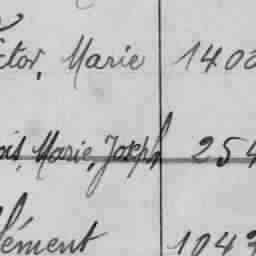 ctor, Marie 1400
ois, Marie, Joseph 254
lément 1043